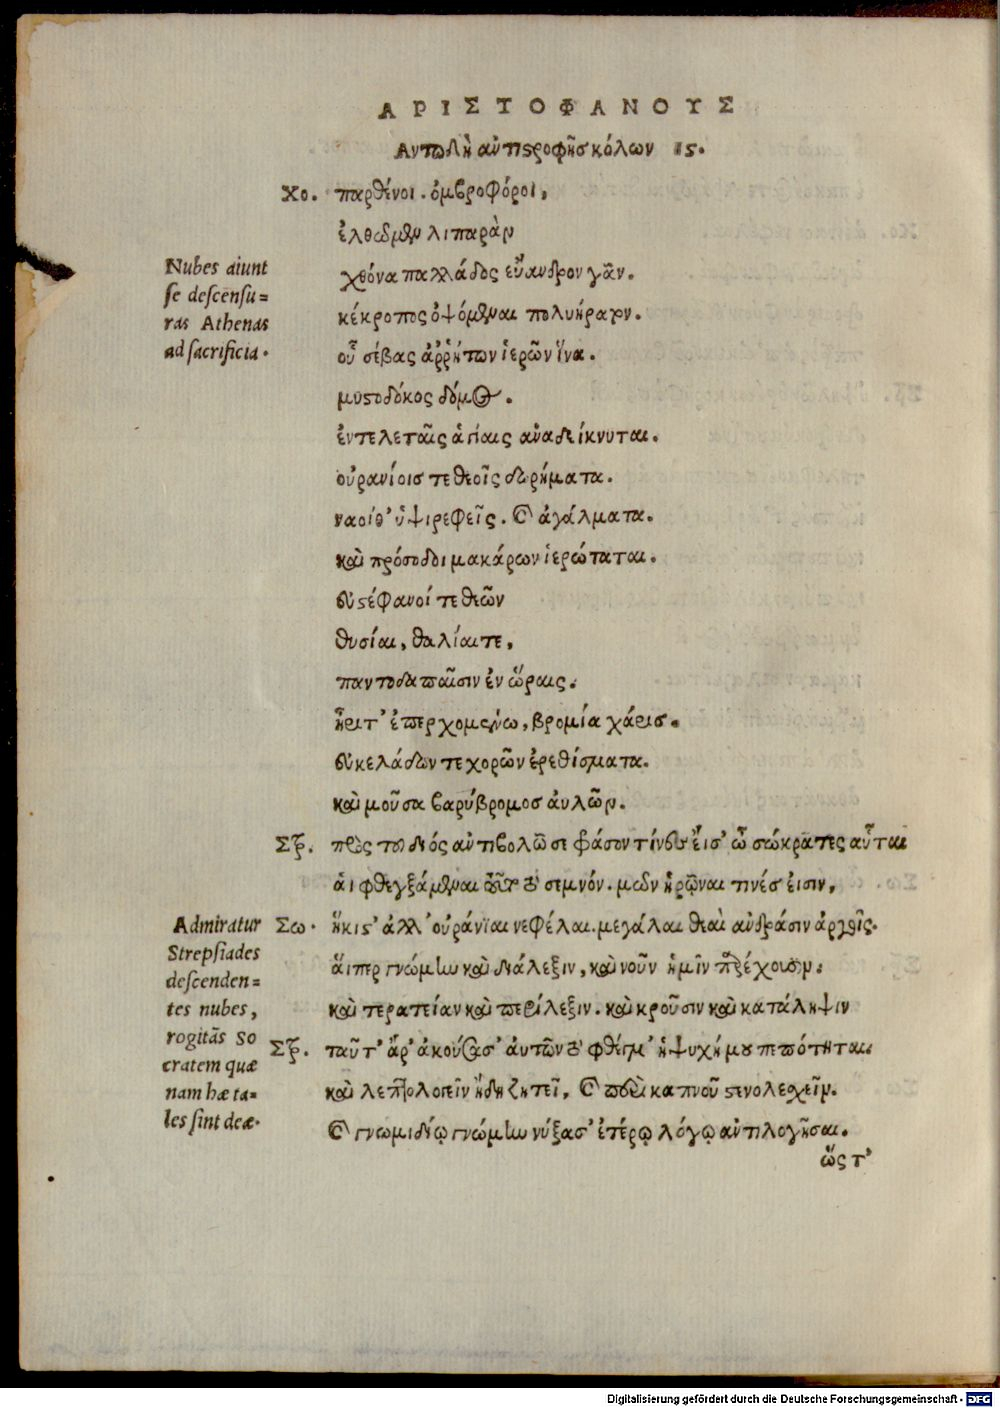 ΑΡΙΣΤΟΦΑΝΟΥΣ
Αντωδὴ αὐτιστροφῆσ κόλων ις.
Χο. παρθένοι. ὀμβροφόροι,
ἐλθωμεν λιπαρὰν
χθόνα παλλάδος εὔανδρον γᾶν.
κέκροπος ὀψόμεναι πολυήρατν.
οὗ σέβας ἀῤῥήτων ἱερῶν ἵνα.
μυστοδόκος δόμος.
ἐν τελεταῖς ἁγίαις αναδείκνυται.
οὐρανίοισ τε θεοῖς δωρήματα.
ναοίθ’ ὑψιρεφεῖς. καὶ ἀγάλματα.
καὶ πρόσοδοι μακάρων ἱερώταται.
εὐστέφανοί τε θεῶν
θυσίαι, θαλίαι τε,
παντοδαπαῖσιν ἐν ὥραις.
ἦρι τ’ ἐπερχομένω, βρομία χάρισ.
εὐκελάδων τε χορῶν ἐρεθίσματα.
καὶ μοῦσα βαρύβρομοσ ἀυλῶν.
Στρ. πρὸς τοῦ διός αντιβολῶ σε φάσον τίνες εἴσ’ ὦ σώκρατες αὗται
ἁι φθεγξάμεναι τοῦτο τὸ σεμνόν. μῶν ἡρῶναι τινές ἐισιν,
Σω. ἥκιστ’ ἀλλ’ οὐράνϊαι νεφέλαι. μεγάλαι θεαὶ ανδράσιν ἀργοῖς.
ἅιπερ γνώμην καὶ διάλεξιν, καὶ νοῦν ἡμῖν παρέχουσιν.
καὶ τερατείαν καὶ περίλεξιν. καὶ κροῦσιν καὶ κατάληψιν
Στρ. ταῦτ’ ἄρ’ ἀκούσασ’ ἀυτῶν τὸ φθέγμ’ ἡ ψυχή μου πεπότηται.
καὶ λεπτολογεῖν ἤδη ζητεῖ, καὶ περὶ καπνοῦ στενολεσχεῖν.
καὶ γνωμιδίῳ γνώμην νύξασ’ ἑτέρῳ λόγῳ αντιλογῆσαι.
ὥς τ’
Nubes aiunt
se descensu=
ras Athenas
ad sacrificia.
Admiratur
Strepsiades
descenden=
tes nubes,
rogitãs So
cratem quæ
nam hæ ta=
les sint deæ.
Digitalisierung gefördert durch die Deutsche Forschungsgemeinschaft - DFG